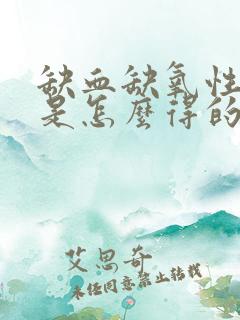 缺血缺氧性
是怎麼得的
艾思奇
未经同意禁止转载